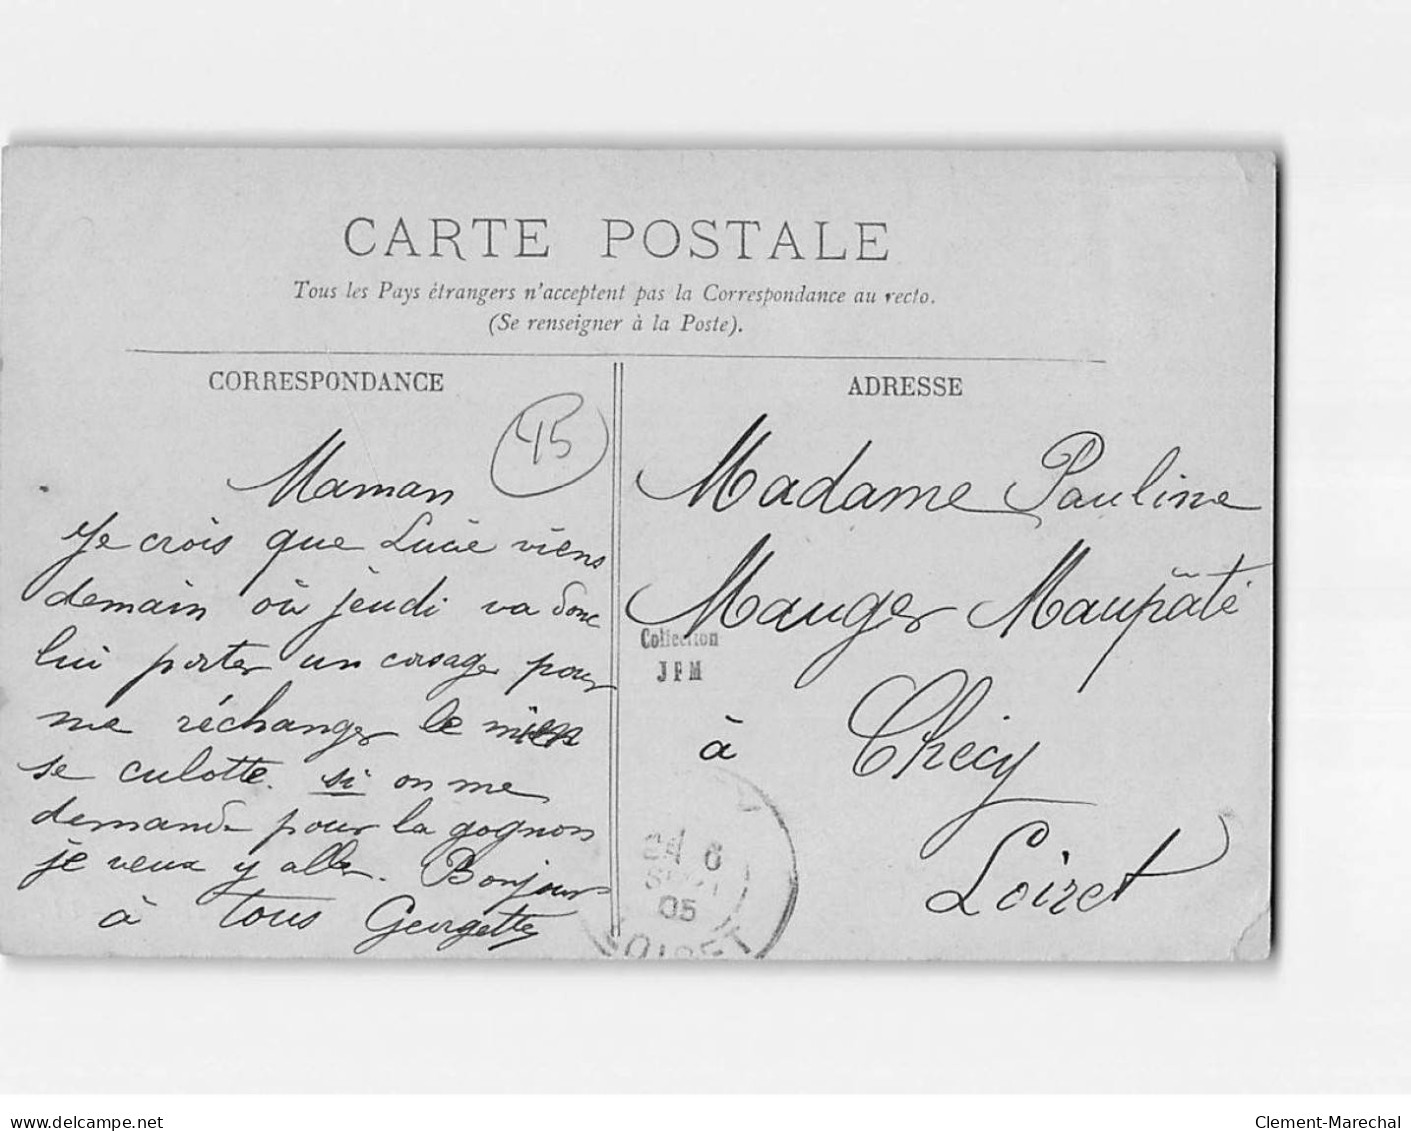 CARTE POSTALE
Tous les Pays étrangers n'acceptent pas la Correspondance au recto.
(Se renseigner à la Poste).
CORRESPONDANCE
45
Maman
Je crois que Lucie viens
demain où jeudi va donc
lui porter un corsage pour
me réchanger le mien
se culotte. si on me
demande pour la gognon
je veux y aller. Bonjour
à tous Georgette
ADRESSE
Madame Pauline
Mauger Maupâté
Collection
JFM
à Checy
Loiret
6
05
LOIRET
delcampe.net
Clement-Marechal